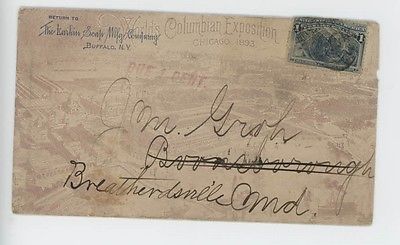 RETURN TO
The Larkin Soap Mfg Company
BUFFALO, N.Y.
World's Columbian Exposition
CHICAGO, 1893
DUE 1 CENT.
J M. Groh
Boonsborough
Breatherdsville Md.